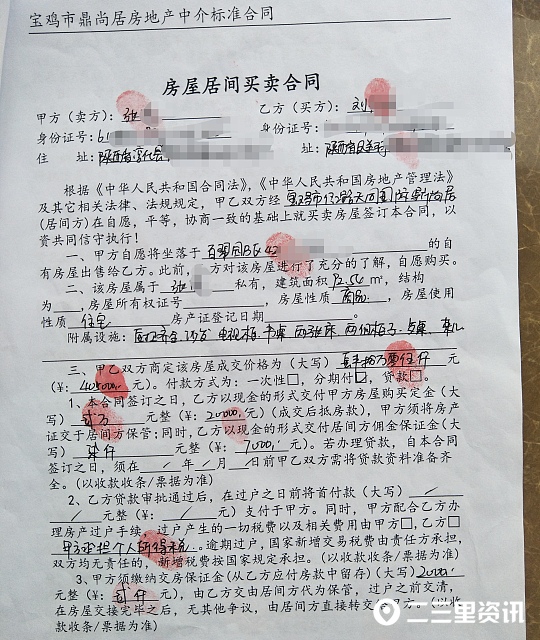 宝鸡市鼎尚居房地产中介标准合同
房屋居间买卖合同
甲方（卖方）：张
乙方（买方）：刘
身份证号：61
身份证号：
住 址：陕西省
址：陕西省
根据《中华人民共和国合同法》，《中华人民共和国房地产管理法》
及其它相关法律、法规规定，甲乙双方经
(居间方)在自愿，平等，协商一致的基础上就买卖房屋签订本合同，以
资共同信守执行！
一、甲方自愿将坐落于 的自
有房屋出售给乙方。此前， 方对该房屋进行了充分的了解，自愿购买。
二、该房屋属于 张 私有，建筑面积 72.54 ㎡，结构
为 ，房屋所有权证号 ，房屋性质 商品，房屋使用
性质 住宅 房产证登记日期 。
附属设施： 电视柜
三、甲乙双方商定该房屋成交价格为（大写） 元
（¥: 405000 元）。付款方式为：一次性□，分期付□，贷款□。
1、本合同签订之日，乙方以现金的形式交付甲方房屋购买定金（大
写） 贰万 元整（¥: 20000 元）(成交后抵房款），甲方须将房产
证交于居间方保管；同时，乙方以现金的形式交付居间方佣金保证金(大
写) 柒仟 元整（¥: 7000 元）。若办理贷款，自本合同
签订之日，须在 / 年 / 月 / 日前甲乙方需将贷款资料准备齐
全。(以收款收条/票据为准)
2、乙方贷款审批通过后，在过户之日前将首付款（大写） /
/ 元整（¥: / 元）支付于甲方。同时，甲方配合乙方办
理房产过户手续，过户产生的一切税费以及相关费用由甲方□,乙方□
甲方承担个人所得税。逾期过户，国家新增交易税费由责任方承担，
双方均无责任的，新增税费按国家规定承担。(以收款收条/票据为准)
3、甲方须缴纳交房保证金(从乙方应付房款中留存)(大写) 2000
贰仟 元，由乙方交由居间方代为保管，过户之前交清，
在房屋交接完毕之后，无其他争议，由居间方直接转交 甲方。(以收
款收条/票据为准)
二三里资讯